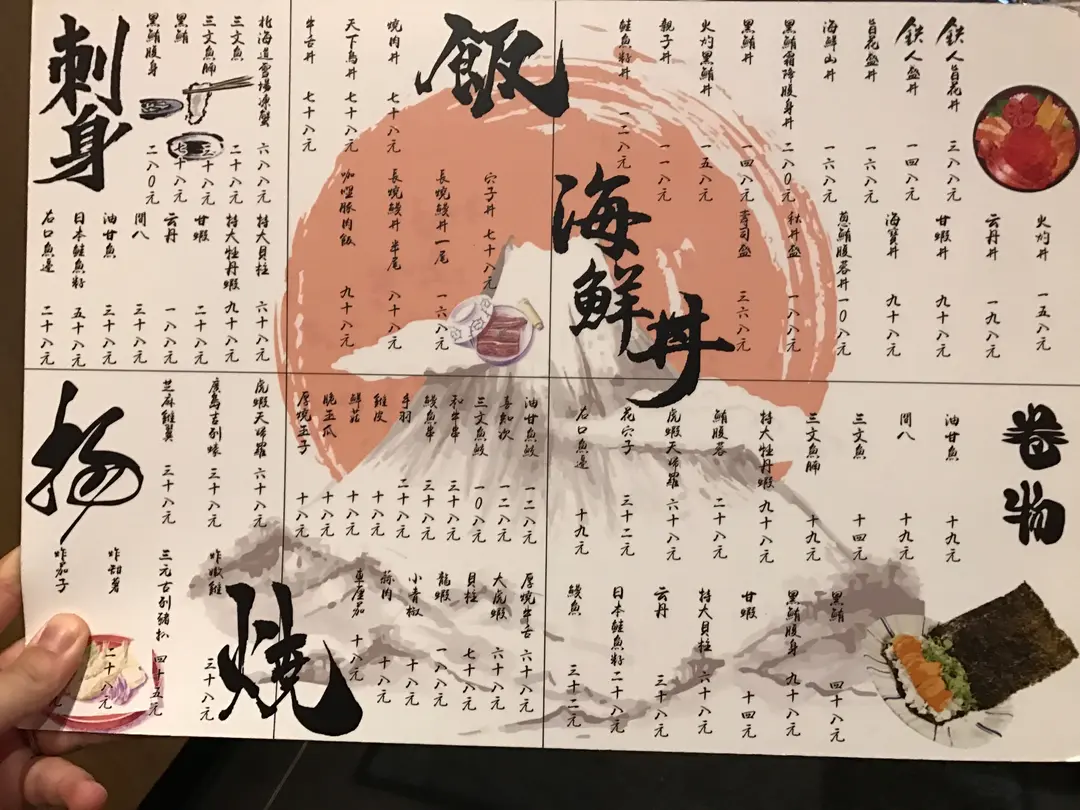 海鮮丼
鉄人旨花丼 三八八元
鉄人盛丼 一四八元
旨花盛丼 一六八元
海鮮山丼 一六八元
黑鮪霜降腹身丼 二八0元
黑鮪丼 一四八元
火灼黑鮪丼 一五八元
親子丼 一一八元
鮭魚籽丼 一二八元
火灼丼 一五八元
云丹丼 一九八元
甘蝦丼 九十八元
海寶丼 九十八元
蔥鮪腹蓉丼 一0八元
丼盛 一八八元
壽司盛 三六八元
飯
燒肉丼 七十八元
天下鳥丼 七十八元
牛舌丼 七十八元
穴子丼 七十八元
長燒鰻丼一尾 一六八元
長燒鰻丼半尾 八十八元
咖喱豚肉飯 九十八元
刺身
北海道 凍蟹 六八八元
三文魚 二十八元
三文魚腩 三十八元
黑鮪 七十八元
黑鮪腹身 二八0元
特大貝柱 六十八元
特大牡丹蝦 九十八元
甘蝦 二十八元
云丹 一八八元
間八 三十八元
油甘魚 三十八元
日本鮭魚籽 五十八元
右口魚邊 二十八元
卷物
油甘魚 十九元
間八 十九元
三文魚 十四元
三文魚腩 十九元
特大牡丹蝦 九十八元
鮪腹蓉 二十八元
虎蝦天婦羅 六十八元
花穴子 三十二元
右口魚邊 十九元
黑鮪 四十八元
黑鮪腹身 九十八元
甘蝦 十四元
特大貝柱 六十八元
云丹 三十八元
日本鮭魚籽 二十八元
鰻魚 三十二元
燒
油甘魚鮫 一二八元
喜知次 一二八元
三文魚鮫 一0八元
和牛串 三十八元
鰻魚串 三十八元
手羽 二十八元
雞皮 十八元
鮮菇 十八元
脆玉瓜 十八元
厚燒玉子 十八元
厚燒牛舌 六十八元
大虎蝦 六十八元
貝柱 七十八元
龍蝦 一八八元
小青椒 十八元
蒜肉 十八元
車厘茄 十八元
揚
虎蝦天婦羅 六十八元
廣島吉列蠔 三十八元
芝麻雞翼 三十八元
炸嫩雞 三十八元
三元吉列豬扒 四十五元
炸知茗 二十八元
炸茄子 元